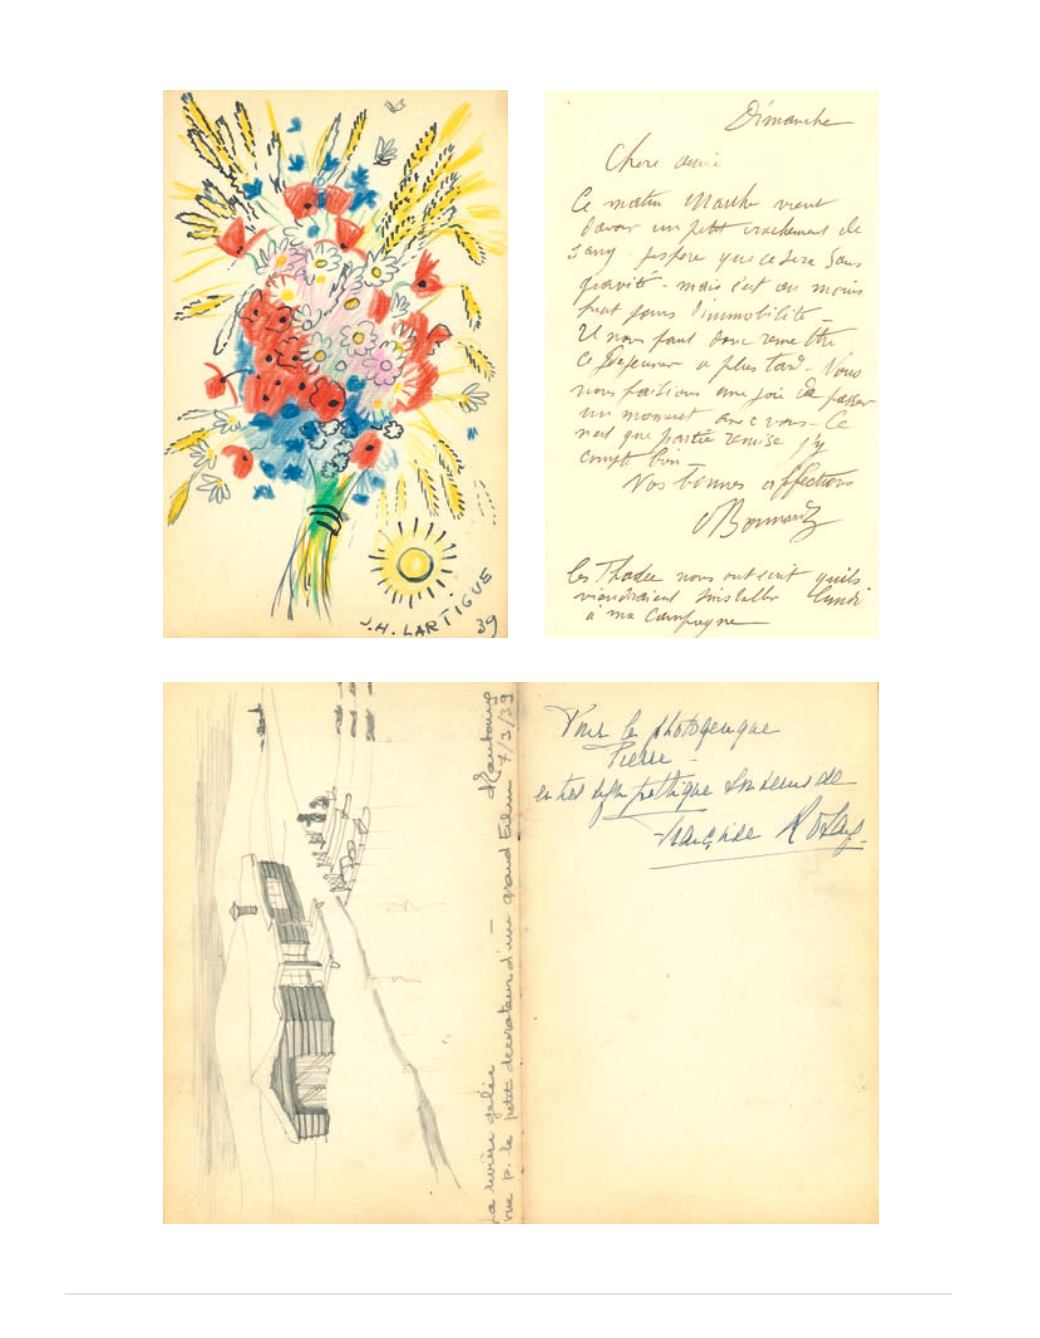 J.H. LARTIGUE
39
Dimanche
Chere amie
Ce matin Marthe vient
d'avoir un petit crachement de
sang. j'espere que ce sera sans
gravité - mais c'est au moins
huit jours d'immobilité -
Il nous faut donc remettre
ce dejeuner a plus tard - Nous
nous faisions une joie de passer
un moment avec vous - Ce
n'est que partie remise j'y
compte bien -
Vos bonnes affections
Bonnard
les Thadee nous ont écrit qu'ils
viendraient s'installer lundi
à ma Campagne
La rivière gelée
vue p. le petit decorateur d'un grand Film 7/3/39
Pour le photogenique
Pierre -
en très sympathique souvenir de
Françoise Rosay